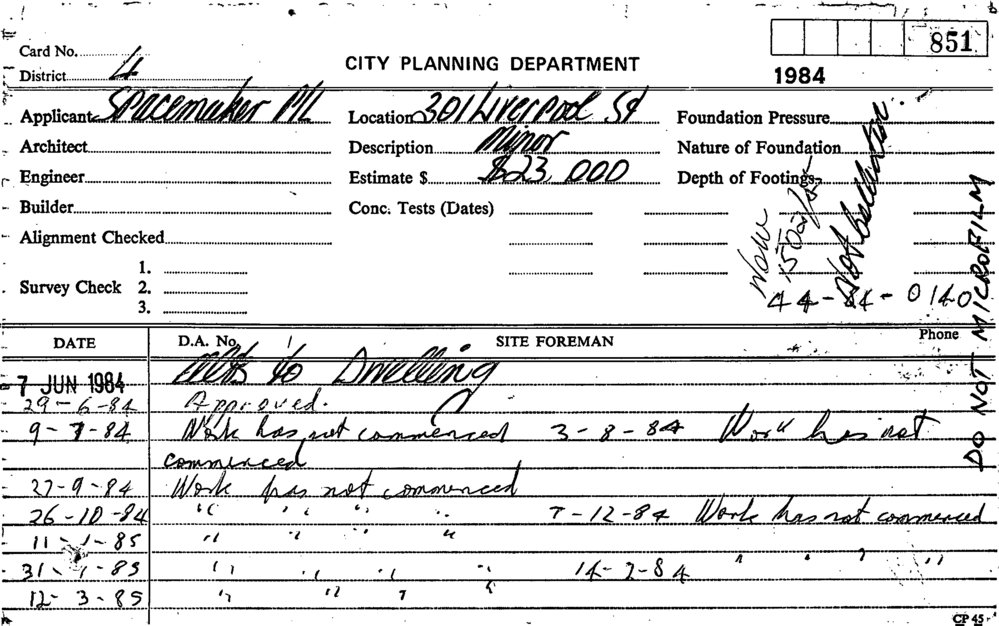 851
Card No.
District 4
CITY PLANNING DEPARTMENT
1984
Applicant Spacemaker P/L
Location 301 Liverpool St
Foundation Pressure
Architect
Description Minor
Nature of Foundation
Engineer
Estimate $ $23,000
Depth of Footings
Builder
Conc. Tests (Dates)
Alignment Checked
Survey Check
1.
2.
3.
Now
44-84-0140
DO NOT MICROFILM
DATE D.A. No. SITE FOREMAN Phone
7 JUN 1984 Alts to Dwelling
29-6-84 Approved.
9-7-84 Work has not commenced 3-8-84 Work has not
commenced
27-9-84 Work has not commenced
26-10-84 " " " " 7-12-84 Work has not commenced
11-1-85 " " " "
31-1-85 " " " " 14-2-84 " " " "
12-3-85 " " " "
CP 45